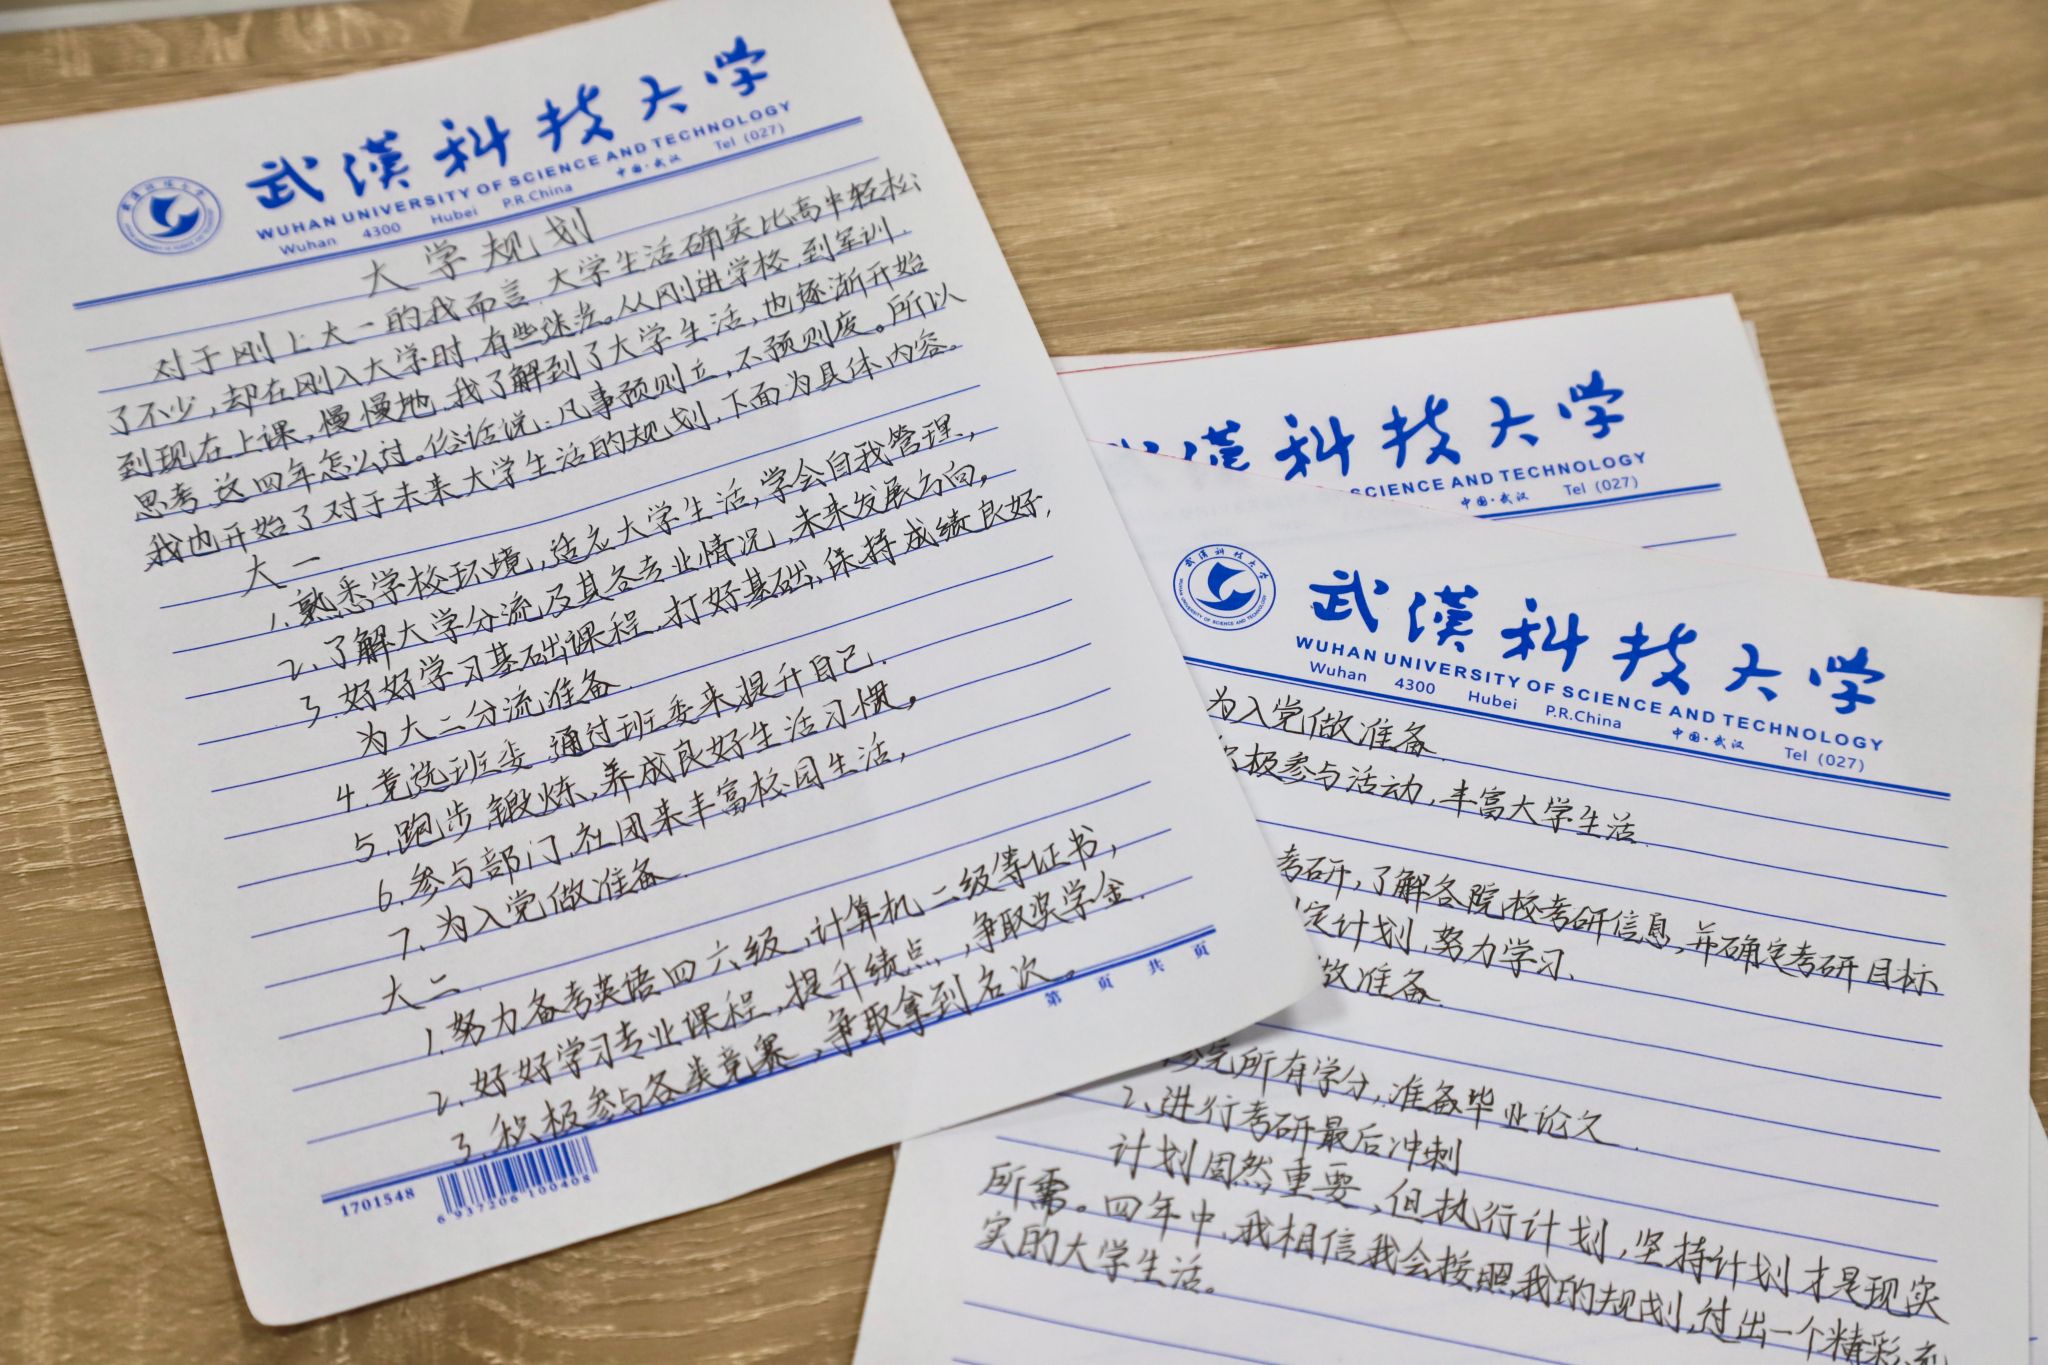 武漢科技大学
WUHAN UNIVERSITY OF SCIENCE AND TECHNOLOGY
Wuhan 4300 Hubei P.R.China 中国·武汉 Tel (027)
大学规划
对于刚上大一的我而言,大学生活确实比高中轻松
了不少,却在刚入大学时,有些迷茫。从刚进学校,到军训,
到现在上课,慢慢地,我了解到了大学生活,也逐渐开始
思考,这四年怎么过。俗话说:凡事预则立,不预则废。所以
我也开始了对于未来大学生活的规划,下面为具体内容。
大一
1.熟悉学校环境,适应大学生活,学会自我管理,
2.了解大学分流及其各专业情况,未来发展方向,
3.好好学习基础课程,打好基础,保持成绩良好,
为大二分流准备
4.竞选班委,通过班委来提升自己.
5.跑步,锻炼,养成良好生活习惯,
6.参与部门,社团来丰富校园生活,
7.为入党做准备.
大二
1.努力备考英语四六级,计算机二级等证书,
2.好好学习专业课程,提升绩点,争取奖学金.
3.积极参与各类竞赛,争取拿到名次。
第 页 共 页
1701548
6 937206 100408
漢科技大学
SCIENCE AND TECHNOLOGY
中国·武汉 Tel (027)
武漢科技大学
WUHAN UNIVERSITY OF SCIENCE AND TECHNOLOGY
武漢科技大学
WUHAN UNIVERSITY OF SCIENCE AND TECHNOLOGY
Wuhan 4300 Hubei P.R.China 中国·武汉 Tel (027)
为入党做准备
极参与活动,丰富大学生活
考研,了解各院校考研信息,并确定考研目标
定计划,努力学习.
做准备.
修完所有学分,准备毕业论文.
2.进行考研最后冲刺
计划固然重要,但执行计划,坚持计划才是现实
所需。四年中,我相信我会按照我的规划,过出一个精彩,充
实的大学生活。